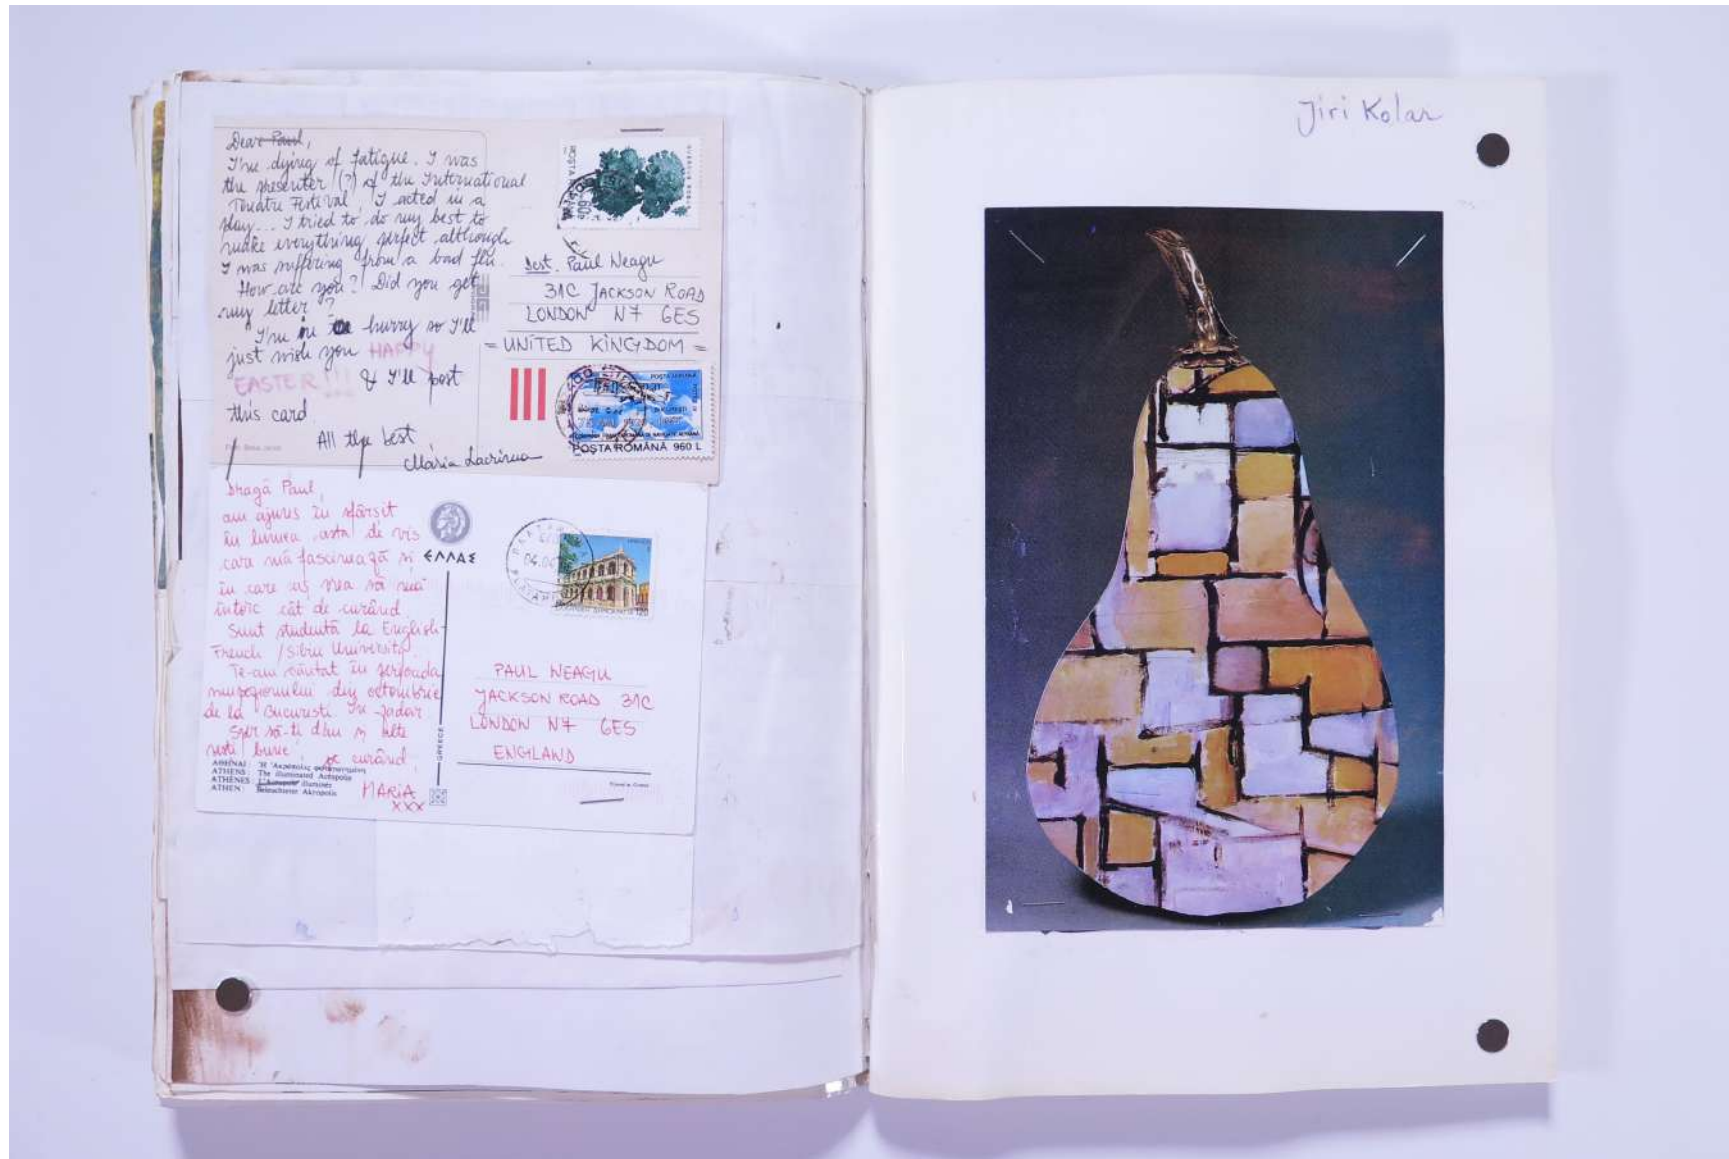 Dear Paul,
I'm dying of fatigue. I was
the presenter (?) of the International
Teatru Festival, I acted in a
play... I tried to do my best to
make everything perfect although
I was suffering from a bad flu.
How are you? Did you get
my letter?
I'm in a hurry so I'll
just wish you HAPPY
EASTER!!! & I'll post
this card.
All the best
Maria Lacrima
POSTA ROMÂNA
Dest. Paul Neagu
31C JACKSON ROAD
LONDON N7 6ES
= UNITED KINGDOM =
POSTA AERIANA
BUCUREȘTI
POȘTA ROMÂNĂ 960 L
Dragă Paul,
am ajuns în sfârșit
în lumea asta de vis
care mă fascinează și
în care aș vrea să mă
întorc cât de curând.
Sunt studentă la English-
French /Sibiu University.
Te-am căutat în perioada
din octombrie
de la București. În zadar.
Sper să-ți dau și alte
vești bune!
pe curând,
MARIA
XXX
ΕΛΛΑΣ
GREECE
ΑΘΗΝΑΙ: Ἡ Ἀκρόπολις φωτισμένη
ATHENS: The illuminated Acropolis
ATHÈNES: L'Acropole illuminée
ATHEN: Beleuchtete Akropolis
04.00
PAUL NEAGU
JACKSON ROAD 31C
LONDON N7 6ES
ENGLAND
Printed in Greece
Jiri Kolar